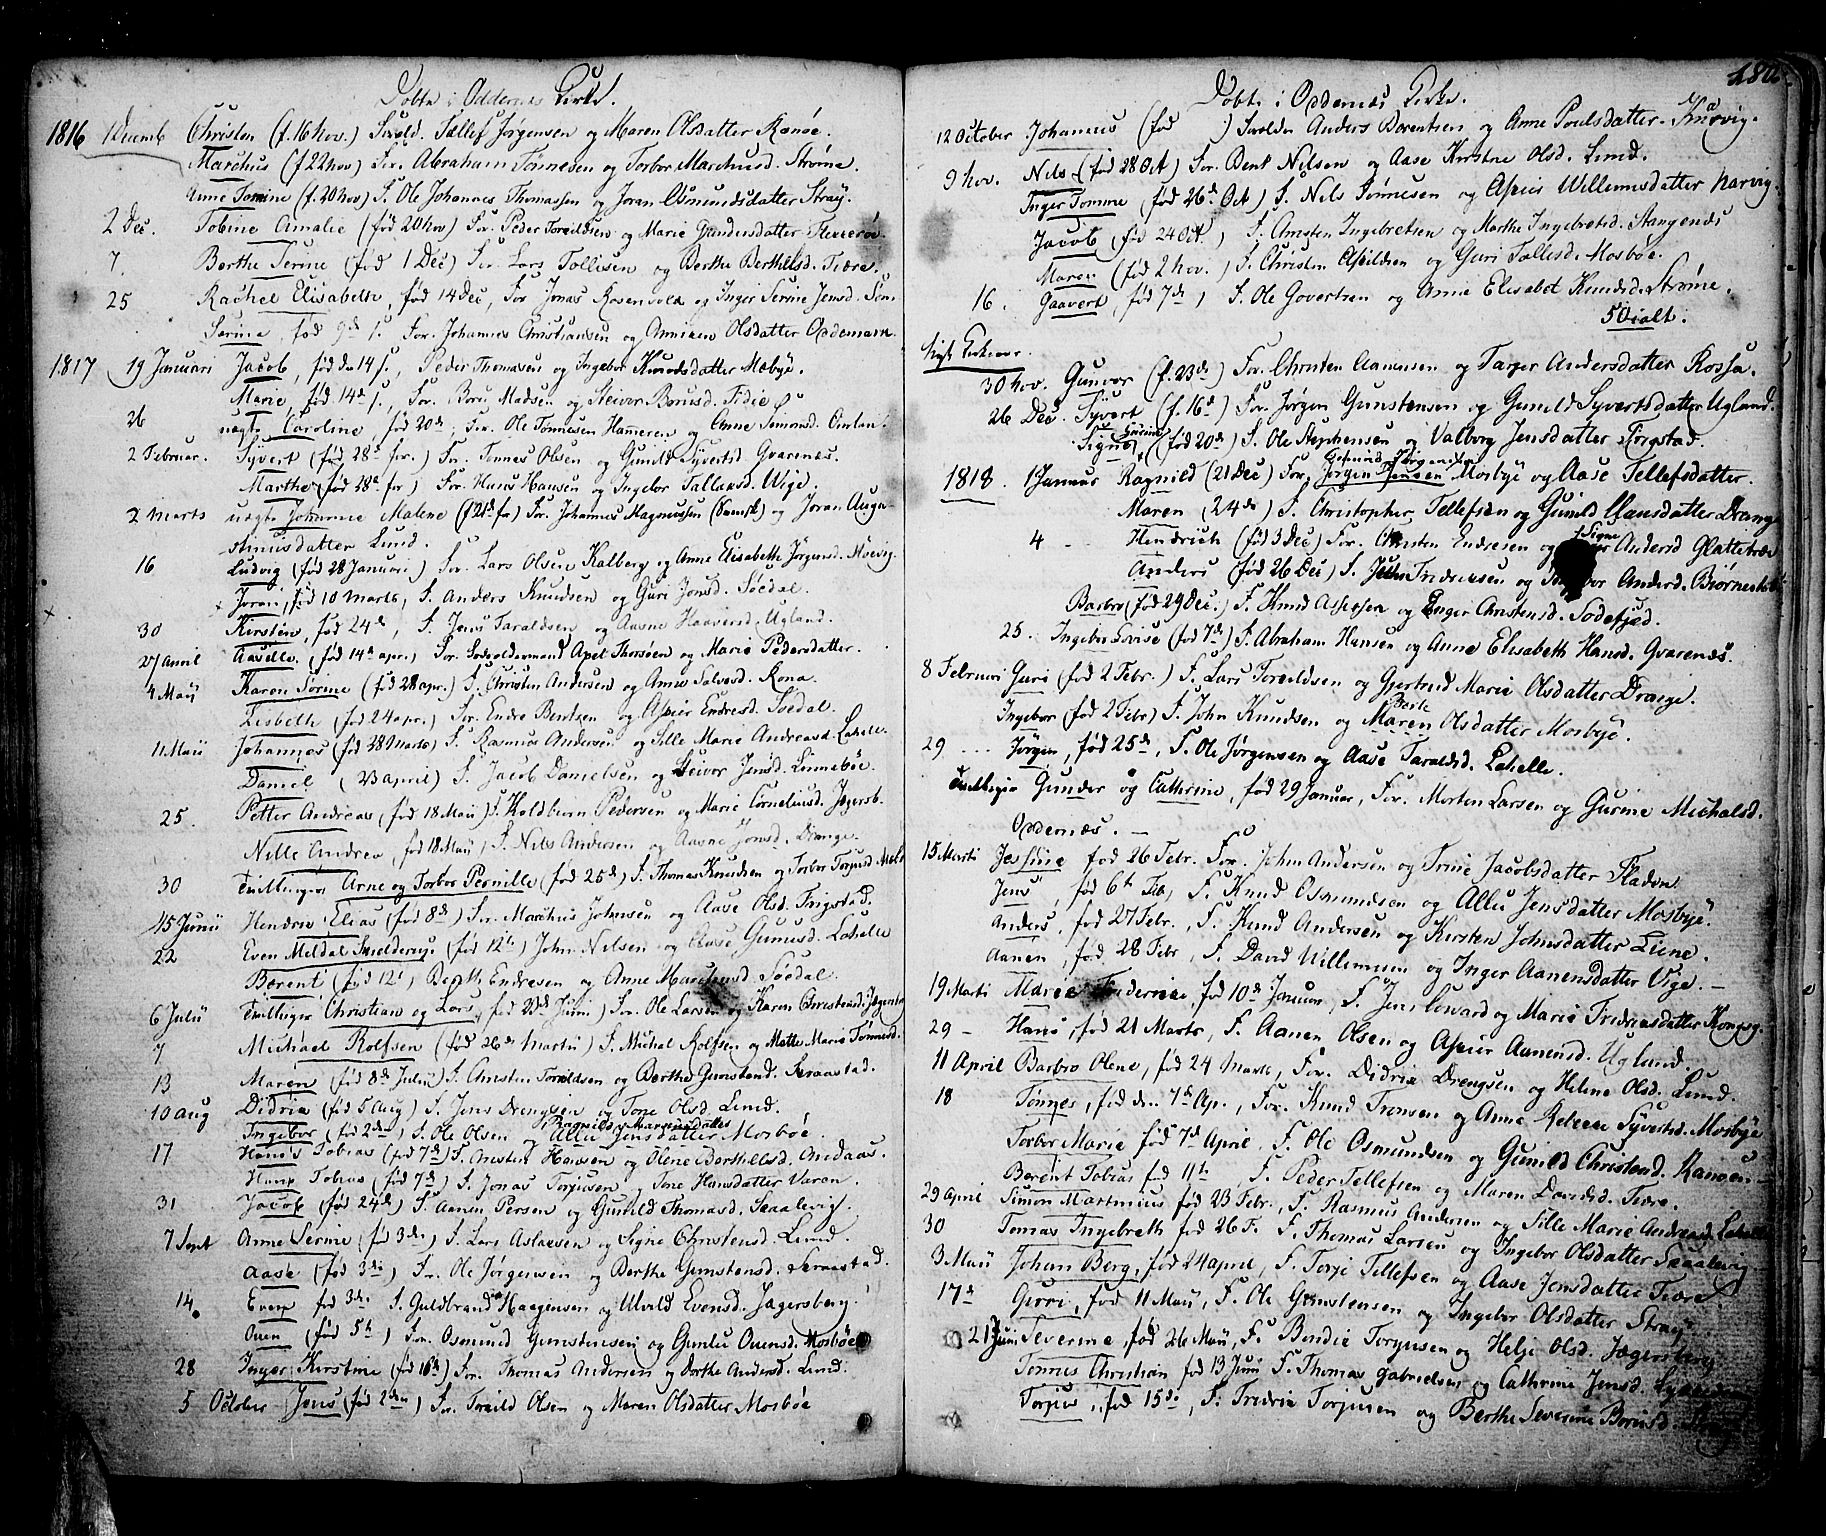 Döbte i Oddernes Kirke.
1816 1 Decemb Christen (f. 16 nov.) For. Tellef Jörgensen og Maren Olsdatter Ronøe.
Marchus (f 22 nov) For. Abraham Tönnesen og Torbor Marchusd. Strøme.
Anne Tomine (f. 20 nov) F. Ole Johannes Thomassen og Joran Osmundsdatter Stray.
2 Dec. Tobine Amalie (fød 20 nov) For. Peder Torkildsen og Marie Gundersdatter
7. Berthe Serine (fød 1 Dec) For. Lars Tollisen og Berthe Berthelsd. Fiære.
25 Rachel Elisabeth, fød 14 Dec, For Jonas Rosenvold og Inger Serine Jensd.
Serine fød 9de For. Johannes Christiansen og Anniken Olsdatter
1817 19 Januari Jacob, fød den 14 Peder Thomasen og Ingebor Knudsdatter Mæbye.
Marie, fød 14de For. Boru Madsen og Steivor Borusd. Fidie
26 uægte Caroline, fød 20de, For. Ole Tönnesen Hamren og Anne Simonsd.
2 Februar. Syvert (fød 28de for.) For. Tönnes Olsen og Gunild Syvertsd. Gvarenæs.
Marthe (fød 28de for) For. Hans Hansen og Ingebor Tallaksd. Wige.
2 Marts uægte Johanne Malene (f 21de fe) For. Johannes Magnussen (Svensk) og Joran Aagu
stinusdatter Lund.
16 Ludvig (fød 28 Januari) For. Lars Olsen Kalberg og Anne Elisabeth Jörgensd.
Joran, fød 10 Marts, F. Anders Knudsen og Guri Jonsd. Søedal.
30 Kirsten, fød 24de, F. Jens Taraldsen og Aasne Haaversd. Ugland.
27 April (fød 14de apr.) For. Axel Thorsøen og Marie Pedersdatter.
4 Maii Karen Sörine (fød 28 apr.) F. Christen Andersen og Anne Salvesd. Rona.
Lisbeth (fød 24 apr.) For. Endre Bentsen og Asper Endresd. Søedal.
11 Maii Johannes (fød 28 Marts) F. Rasmus Andersen og Sille Marie Andreasd. Lahelle.
Daniel (23 april) F. Jacob Danielsen og Steivor Jensd. Linnebøe.
25. Petter Andreas (fød 18 Maii) F. Pedersen og Marie Corneliusd. Jegersb.
Nille Andrea, fød 18 Maii) F. Nils Andersen og Aasne Jonsd. Drange.
30 Tvillinger Arne og Torbor Pernille (fød 25de) F. Thomas Knudsen og Torbor Torjusd.
15 Junii Elias (fød 8de) For. Marchus Johnsen og Aase Olsd. Frigstad.
22 Even Meldal (fød 12te) John Nilsen og Aase Gunusd. Lahelle
Børent (fød 12t) Benth Endresen og Anne Søedal.
6 Julii Tvillinger Christian og Lars, fød 22de Junii) For. Ole Larsen og Karen Christensd. Jegersb.
7 Michael Rolfsen (fød 26de Martii) F. Michal Rolfsen og Mette Marie Tönnesd.
13 Maren (fød 8de Julii) F. Christen Torkildsen og Berthe Gunstensd. Kraastad.
10 Aug Didrik (fød 5 Aug) F. Jens Drengsen og Tone Olsd. Lund.
Ragnild Margrimsdatter
Ingebor (fød 2den) F. Ole Olsen og Allu Jensdatter Mosbøe.
17 Hans Tobias (fød 7de) F. Christen Hansen og Olene Berthelsd. Andaas.
Hans Tobias (fød 7de) F. Jonas Torjusen og Tone Hansdatter Varan.
31 Jacob (fød 24de) F. Aanen Persen og Gunild Thomasd. Skaalevig.
7 Sept Anne Serine (fød 3de) F. Lars Aslaksen og Signe Christensd. Lund.
Aase (fød 3die) F. Ole Jörgensen og Berthe Gunstensd. Kraastad.
14. Even fød 3die F. Guldbrand Haagensen og Evensd. Jagersberg.
Ouen (fød 5te) For. Osmund Gunstensen og Gunlu Ouensd. Mosbøe
28 Inger Kirstine (fød 16de) For. Thomas Andersen og Dorthe Andersd. Lund.
5 October Jens (fød 2den) For. Torkild Olsen og Maren Olsdatter Mosbøe
Döbte i Oddernes Kirke.
12 October Johannes (fød ) Forældre Anders Børentsen og Anne Poulsdatter Kusvig.
9 nov. Nils (fød 28 Oct) For. Bent Nilsen og Aase Kirstine Olsd. Lund.
Inger Tomine (fød 26de Oct) F. Nils Tönnesen og Asper Willumsdatter Narvig.
Jacob (fød 24 Oct.) F. Christen Ingebretsen og Marthe Ingebretsd. Stangenes
Maren (fød 2 nov.) F. Christen Askildsen og Guri Tallefsd. Mosbøe.
16. Gaavert, fød 7de, F. Ole Govertsen og Anne Elisabet Knudsd. Strøme.
50 ialt.
30 nov. Gunvor (f. 23de) For. Christen Aanensen og Tarjer Andersdatter Rossa.
26 Dec. Syvert (f. 16de) For. Jørgen Gunstensen og Gunild Syvertsdatter Ugland.
Signe Gurine (fød 20de) F. Ole Stephensen og Valborg Jensdatter Frigstad.
1818. 1 Januar Ragnild (21 Dec) For. Jørgen Jensen Mosbye og Aase Tellefsdatter.
Maren (24de) F. Christopher Tellefsen og Gunild Clausdatter Drange
4 - Hendrich (fød 3 Dec) For. Christen Endresen og Signe Andersd Glattetræ
Anders (fød 26 Dec) F. Jens Fredricksen og Andersd.
Barbro (fød 29 Dec.) F. Knud og Inger Christensd. Sødefjed.
25. Ingebor Lovise (fød 7de) F. Abraham Hansen og Anne Elisabeth Hansd. Gvarenæs.
8 Februari Guri (fød 2 Febr.) F. Lars Torkildsen og Gjertrud Marie Olsdatter Drange.
Ingebor (fød 2 Febr) F. John Knudsen og Maren Olsdatter Mosbye.
29 ... Jörgen, fød 25de, F. Ole Jörgensen og Aase Taraldsd. Lahelle.
Tvillinger Gunder og Cathrine, fød 29 Januar, For. Morten Larsen og Gurine Michalsd.
Oddernæs. —
15 Marti Jessine fød 26 Febr. For. John Andersen og Trine Jacobsdatter
Jens, fød 6te Feb, F. Knud Osmundsen og Allu Jensdatter Mosbye.
Anders, fød 27 Febr., F. Knud Andersen og Kirsten Johnsdatter Liene.
Aanen, fød, 28 Febr, F. David Willumsen og Inger Aanensdatter Vige. —
19 Marti Maria Frederica, fød 10de Januar, F. Jens Coward og Marie Fredricsdatter Kongsg.
29 - Hans, fød 21 Marts, F. Aanen Olsen og Asper Aanensd. Ugland.
11 April Barbro Olene, fød 24 Marts, For. Didrik Drengsen og Helene Olsd. Lund.
18 Tönnes, fød den 7de Ap., For. Knud Tronsen og Anne Syvertsd. Mosbye
Torbor Marie fød 7de April, F. Ole Osmundsen og Gunild Christensd. Ranøen
Berent Tobias fød 11te, F. Peder Tellefsen og Maren Davidsd. Fiære.
29 April Simon Martinius fød 23 Febr., F. Rasmus Andersen og Sille Marie Andreasd. Lahelle
30 Tomas Ingebreth fød 26 F. F. Thomas Larsen og Ingebor Olsdatter Skaalevig
3 Maii Johan Berg, fød 24 april, F. Torje Tellefsen og Aase Jensdatter Fiære.
17de Guri, fød 11 Maii, F. Ole Gunstensen og Ingebor Olsdatter Stray
21 Juni Severine, fød 26 Maii, F. Bendix Torjusen og Helje Olsd. Jægersberg
Tönnes Christian fød 13 Juni F. Thomas Gabrielsen og Cathrine Jensd.
Torjus, fød 15de, F. Fredrik Torjusen og Berthe Severine Borusd.